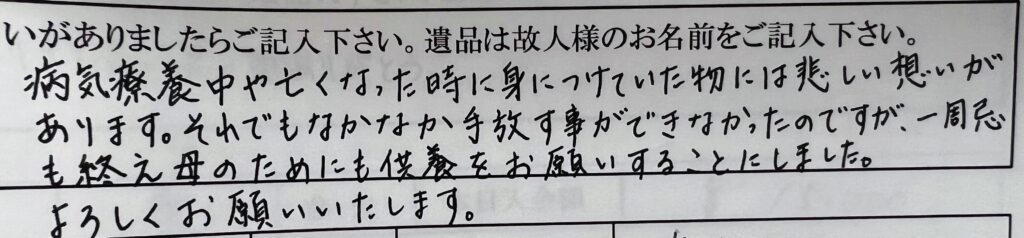 いがありましたらご記入下さい。遺品は故人様のお名前をご記入下さい。
病気療養中や亡くなった時に身につけていた物には悲しい想いが
あります。それでもなかなか手放す事ができなかったのですが、一周忌
も終え母のためにも供養をお願いすることにしました。
よろしくお願いいたします。